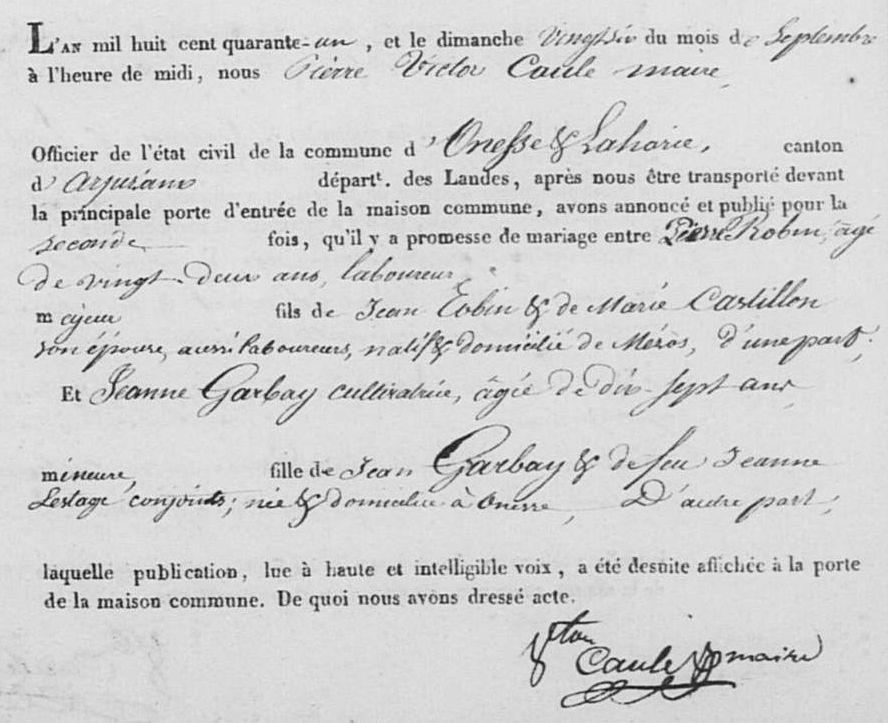 L'AN mil huit cent quarante-un, et le dimanche vingt six du mois de Septembre
à l'heure de midi, nous Pierre Victor Caule maire,
Officier de l'état civil de la commune d'Onesse & Laharie, canton
d'Arjuzanx départt. des Landes, après nous être transporté devant
la principale porte d'entrée de la maison commune, avons annoncé et publié pour la
seconde fois, qu'il y a promesse de mariage entre Pierre Robin, âgé
de vingt-deux ans, laboureur,
majeur fils de Jean Robin & de Marie Castillon
son épouse, aussi laboureurs, natif & domicilié de Mézos, d'une part;
Et Jeanne Garbay cultivatrice, âgée de dix-sept ans,
mineure, fille de Jean Garbay & de feu Jeanne
Lestage conjoints; née & domiciliée à Onesse, D'autre part,
laquelle publication, lue à haute et intelligible voix, a été desuite affichée à la porte
de la maison commune. De quoi nous avons dressé acte.
Vtor
Caule maire